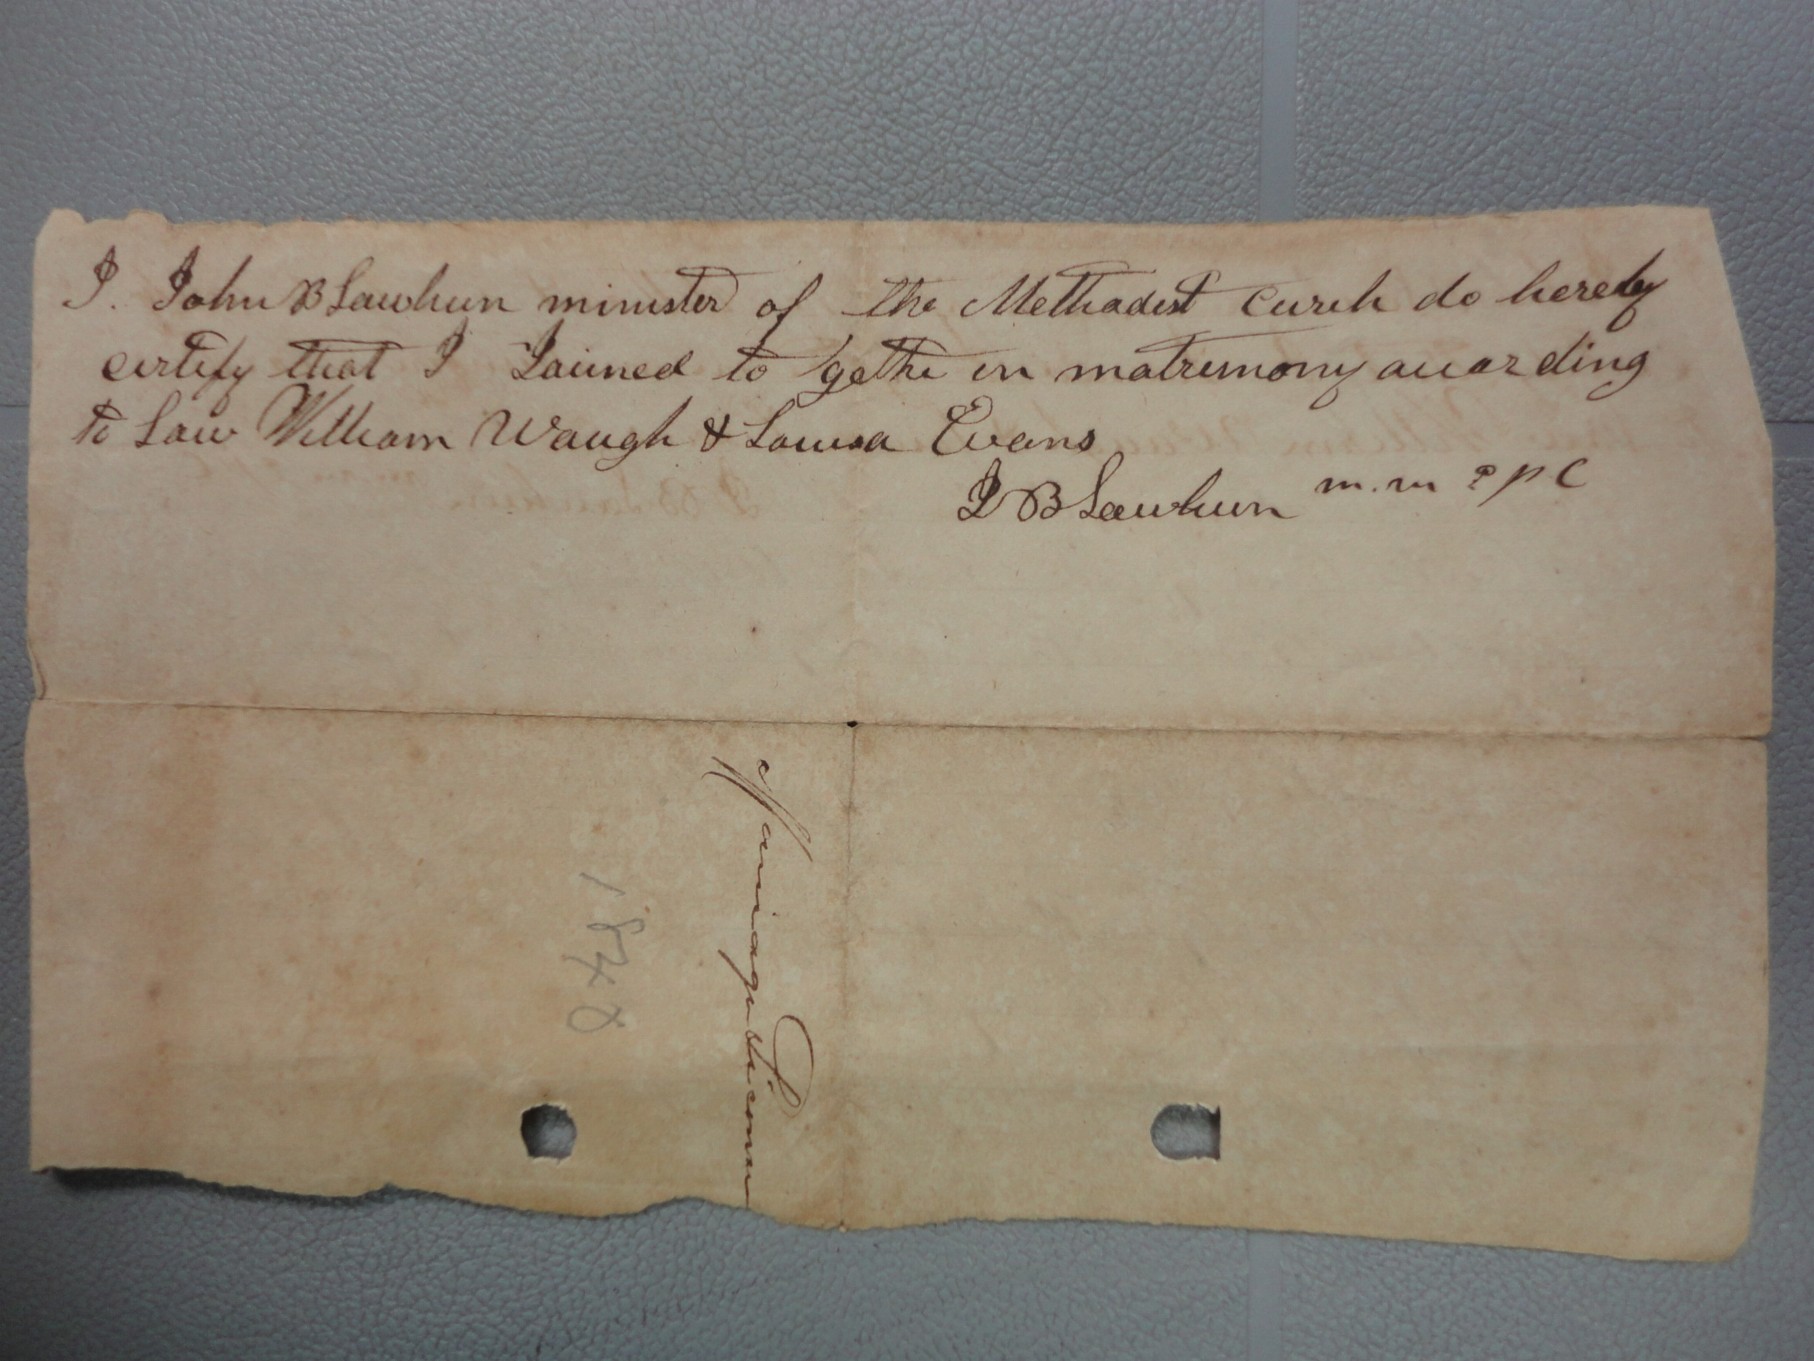 I. John B Lawhun minister of the Methadist Curch do hereby
certify that I Joined to gethe in matrimony according
to Law William Waugh & Louisa Evans
J B Lawhun m.m E P C
Marriage License
1840